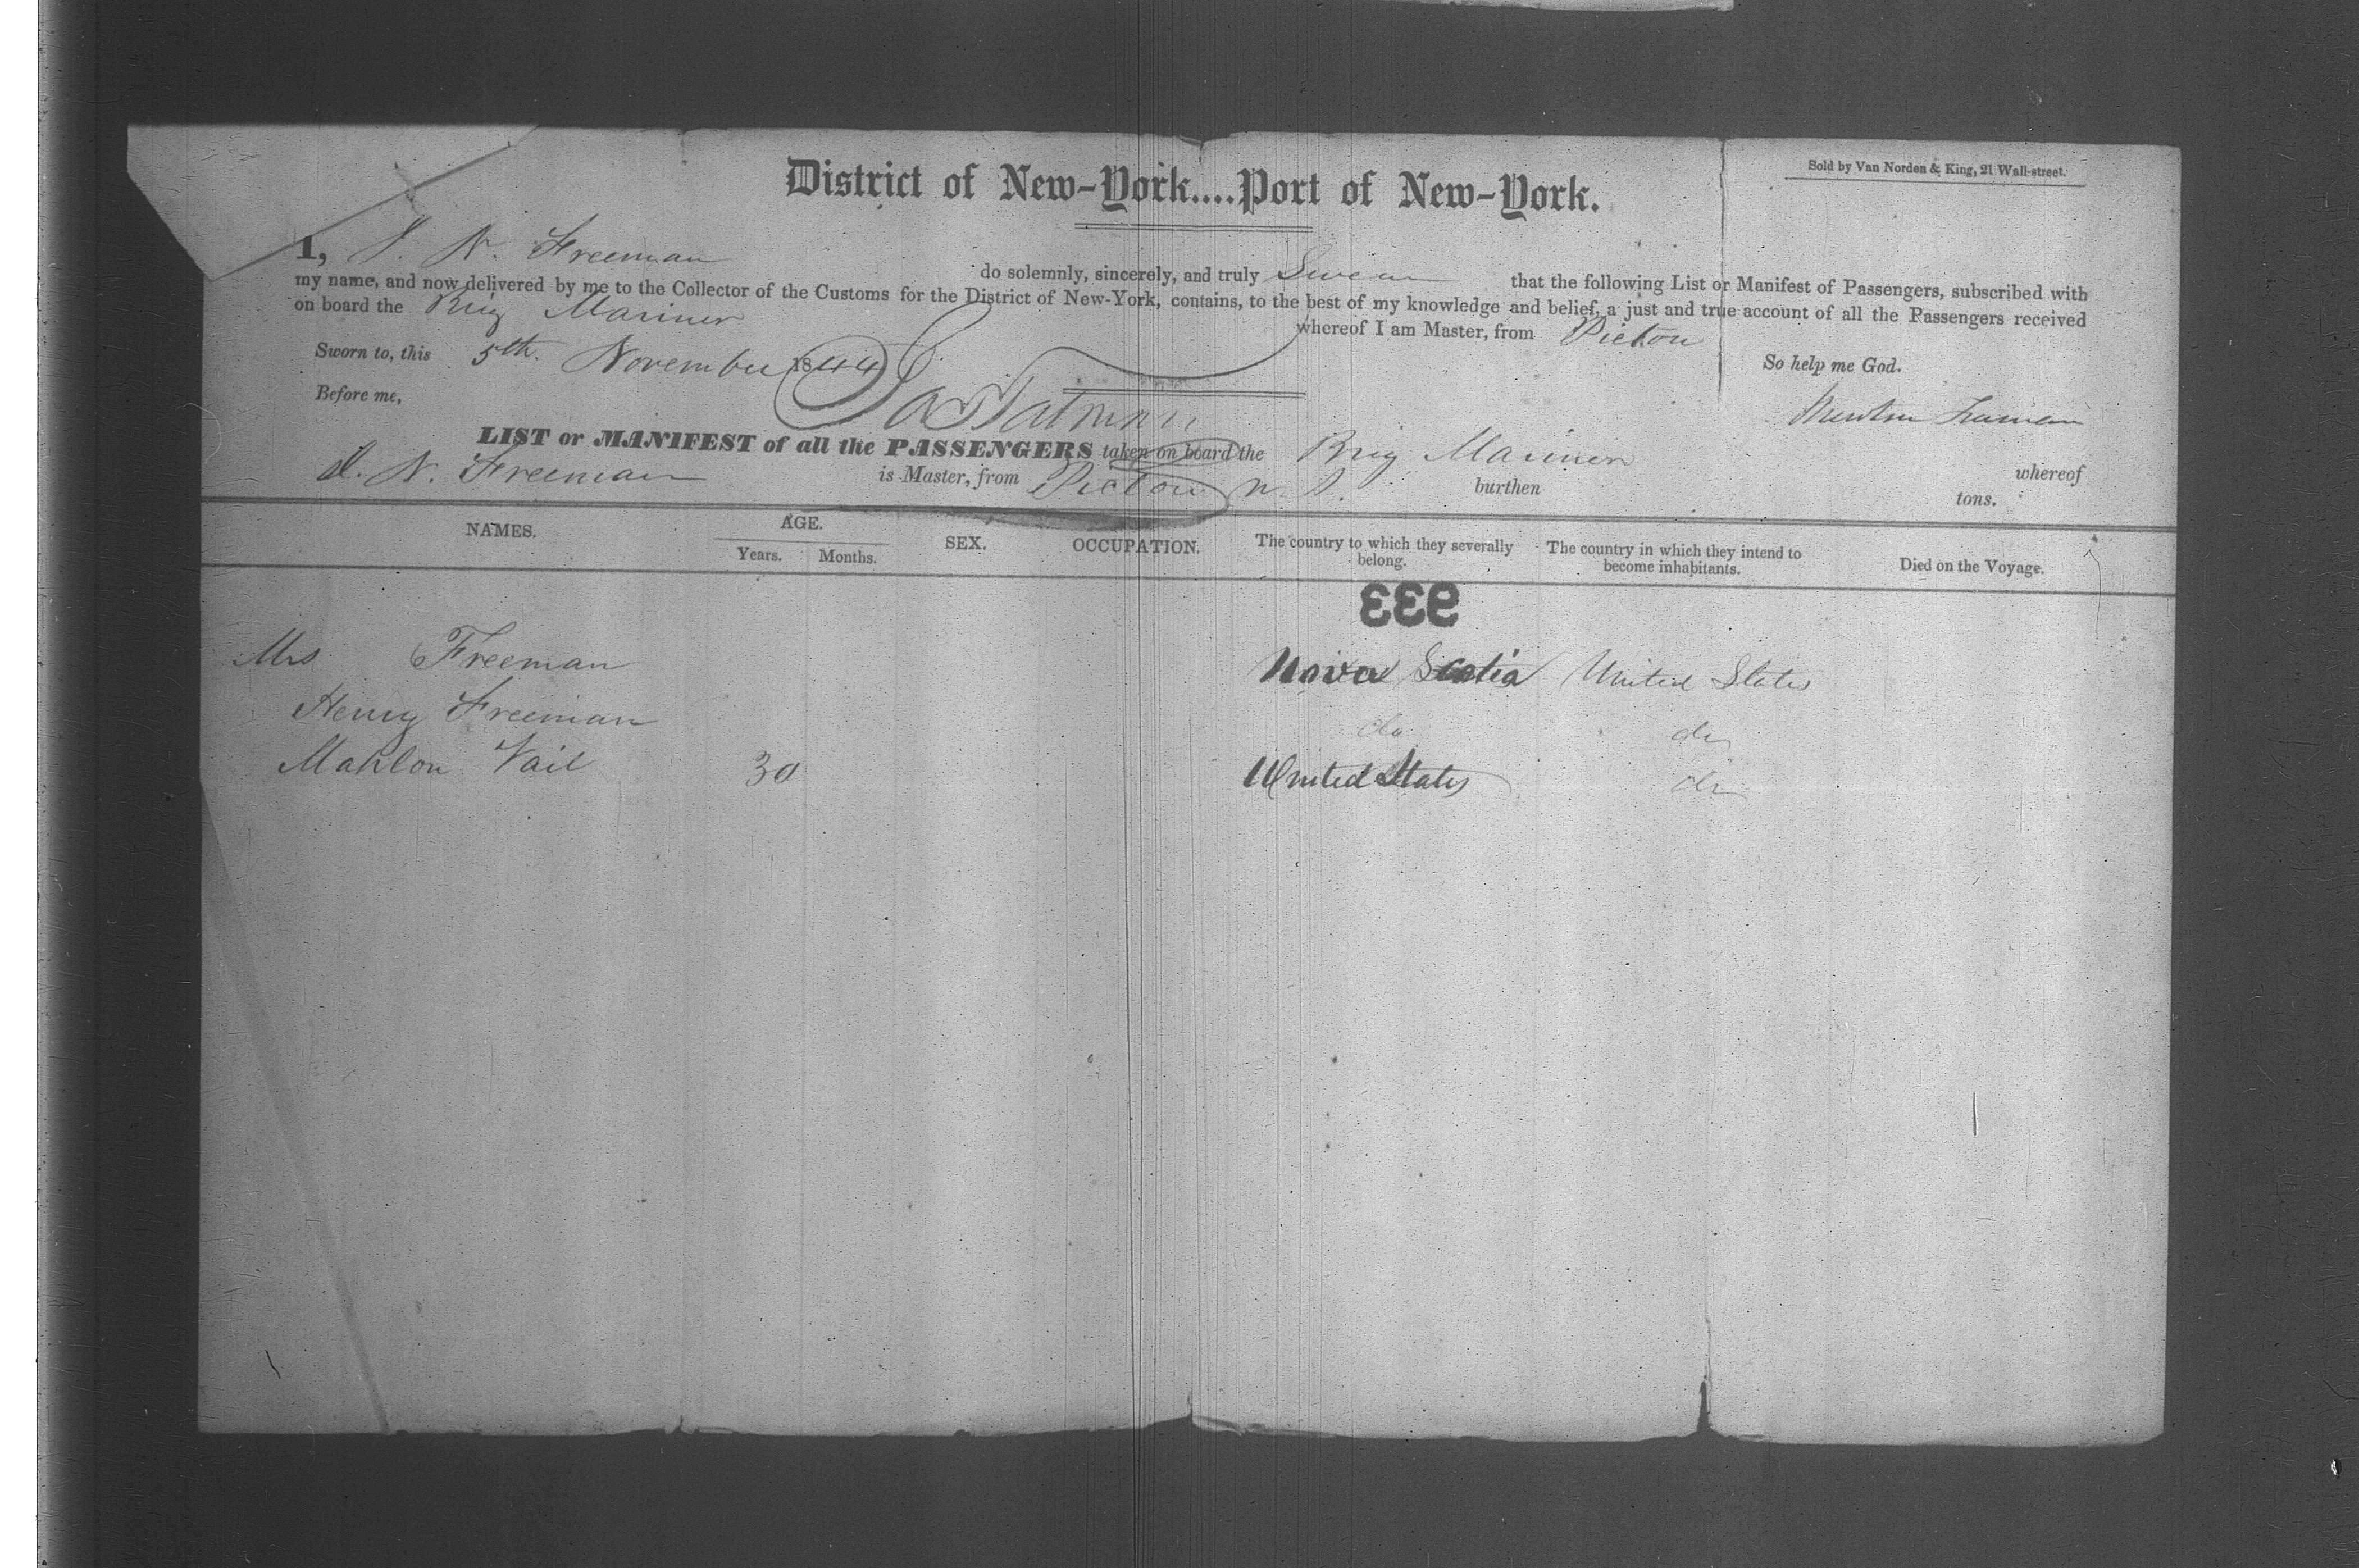 Sold by Van Norden & King, 21 Wall-street.
District of New-York....Port of New-York.
I, J. N. Freeman do solemnly, sincerely, and truly Swear that the following List or Manifest of Passengers, subscribed with
my name, and now delivered by me to the Collector of the Customs for the District of New-York, contains, to the best of my knowledge and belief, a just and true account of all the Passengers received
on board the Brig Mariner whereof I am Master, from Pictou
Sworn to, this 5th. November 1844 So help me God.
Before me,
Freeman
LIST or MANIFEST of all the PASSENGERS taken on board the Brig Mariner whereof
N. Freeman is Master, from Pictou N. S. burthen tons.
NAMES. AGE. SEX. OCCUPATION. The country to which they severally belong. The country in which they intend to become inhabitants. Died on the Voyage.
Years. Months.
933
Mrs Freeman Nova Scotia United States
Henry Freeman do do
Mahlon Vail 30 United States do